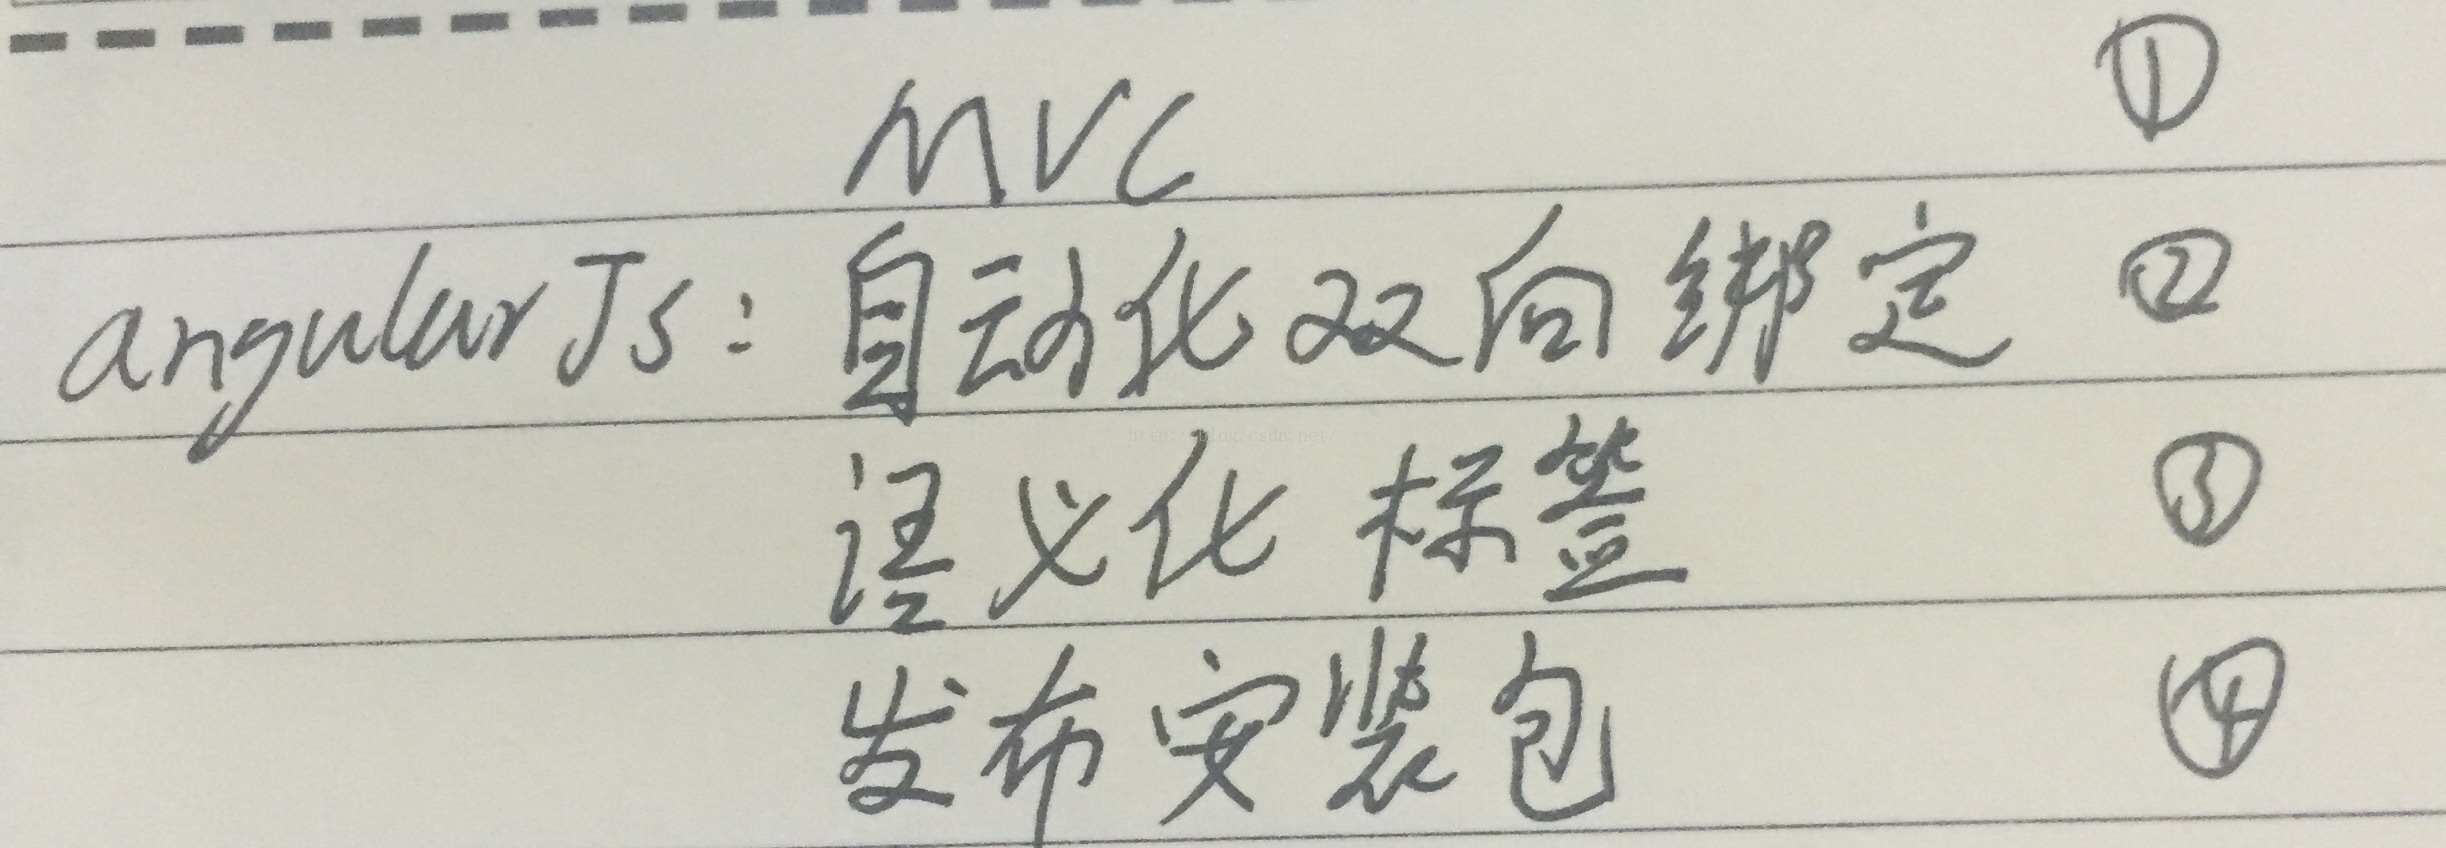 MVC ①
angularJs: 自动化双向绑定 ②
http://blog.csdn.net/
语义化标签 ③
发布安装包 ④